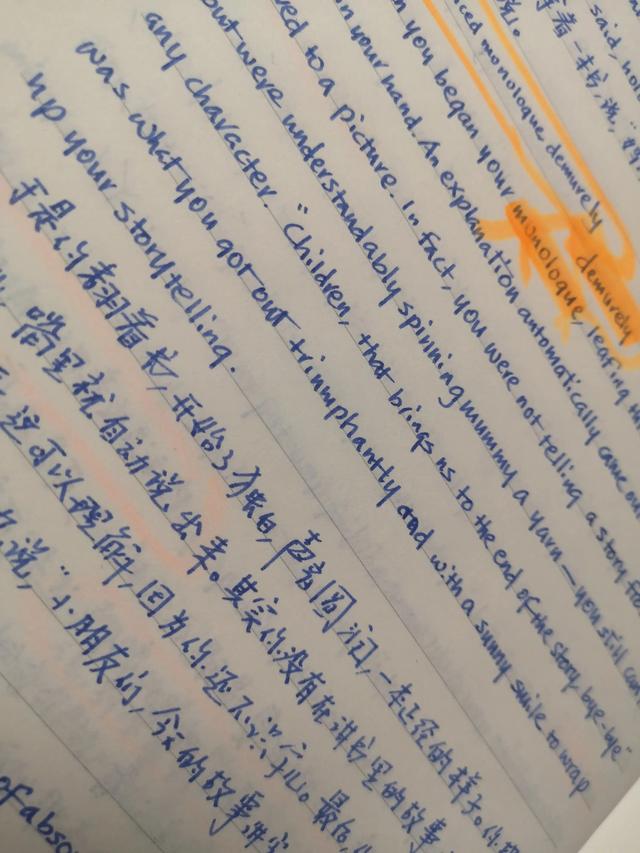 said, no
等着一本书,说,"妈
demurely
nced monologue demurely
n you began your monologue, leafing th
n your hand. An explanation automatically came out
red to a picture. In fact, you were not telling a story fro
but were understandably spinning mummy a yarn — you still can
any character. "Children, that brings us to the end of the story, bye-bye"
was what you got out triumphantly and with a sunny smile to wrap
up your storytelling.
于是你翻着书,开始了独白,声音圆润,一本正经的样子。你
嘴里就自动说出来。其实你没有在讲书里的故事
这可以理解,因为你还不识字儿。最后,你
说,"小朋友们,今天的故事讲完
of abso